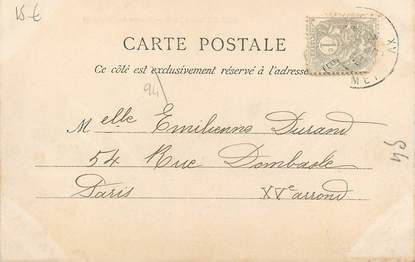 15 €
CARTE POSTALE
Ce côté est exclusivement réservé à l'adresse
94
Melle Emilienne Durand
54 Rue Dombasle
Paris XVe arrond